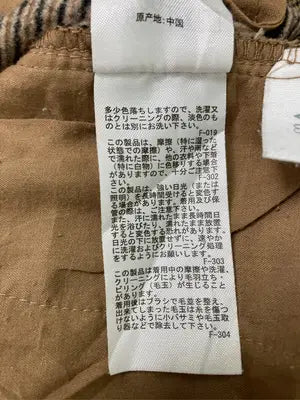 原産地:中国
多少色落ちしますので、洗濯又
はクリーニングの際、淡色のも
のとは別にお洗い下さい。
F-019
この製品は、摩擦(特に湿った
状態での摩擦)や、汗や雨など
で濡れた際に、他の衣料や下着
(特に白物)に色移りする場合
がありますので、十分ご注意下
さい。
F-302
この製品は、強い日光(または
照明)を長時間受けると変色す
る場合があります。着用及び保
管の際は、ご注意下さい。
また、汗に濡れたまま長時間日
光を浴びたり、濡れたまま放置
すると変色する恐れがあります。
日光の下に放置せずに、速やか
に洗濯およびクリーニング処理
をするようお願いします。
F-303
この製品は着用中の摩擦や洗濯、
クリーニングにより毛羽立ち・
ピリング(毛玉)が生じること
があります。
着用後はブラシで毛並を整え、
出来てしまった毛玉は糸を傷つ
けないように小バサミや毛玉取
り器などで除去して下さい。
F-304